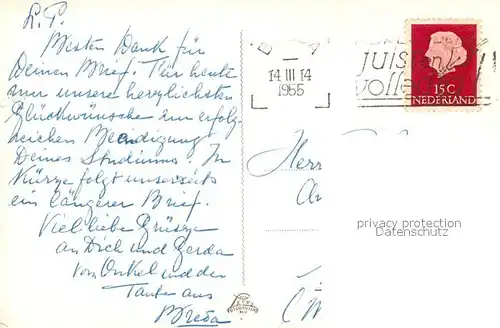 L. P.
Besten Dank für
Deinen Brief. Für heute
nur unsere herzlichsten
Glückwünsche zur erfolg-
reichen Beendigung
Deines Studiums. In
Kürze folgt unserseits
ein längerer Brief.
Viel liebe Grüsze
an Dich und Gerda
von Onkel und der
Tante aus
Breda
14 III 14
1955
JUIST
volle
15 C
NEDERLAND
Herr
privacy protection
Datenschutz